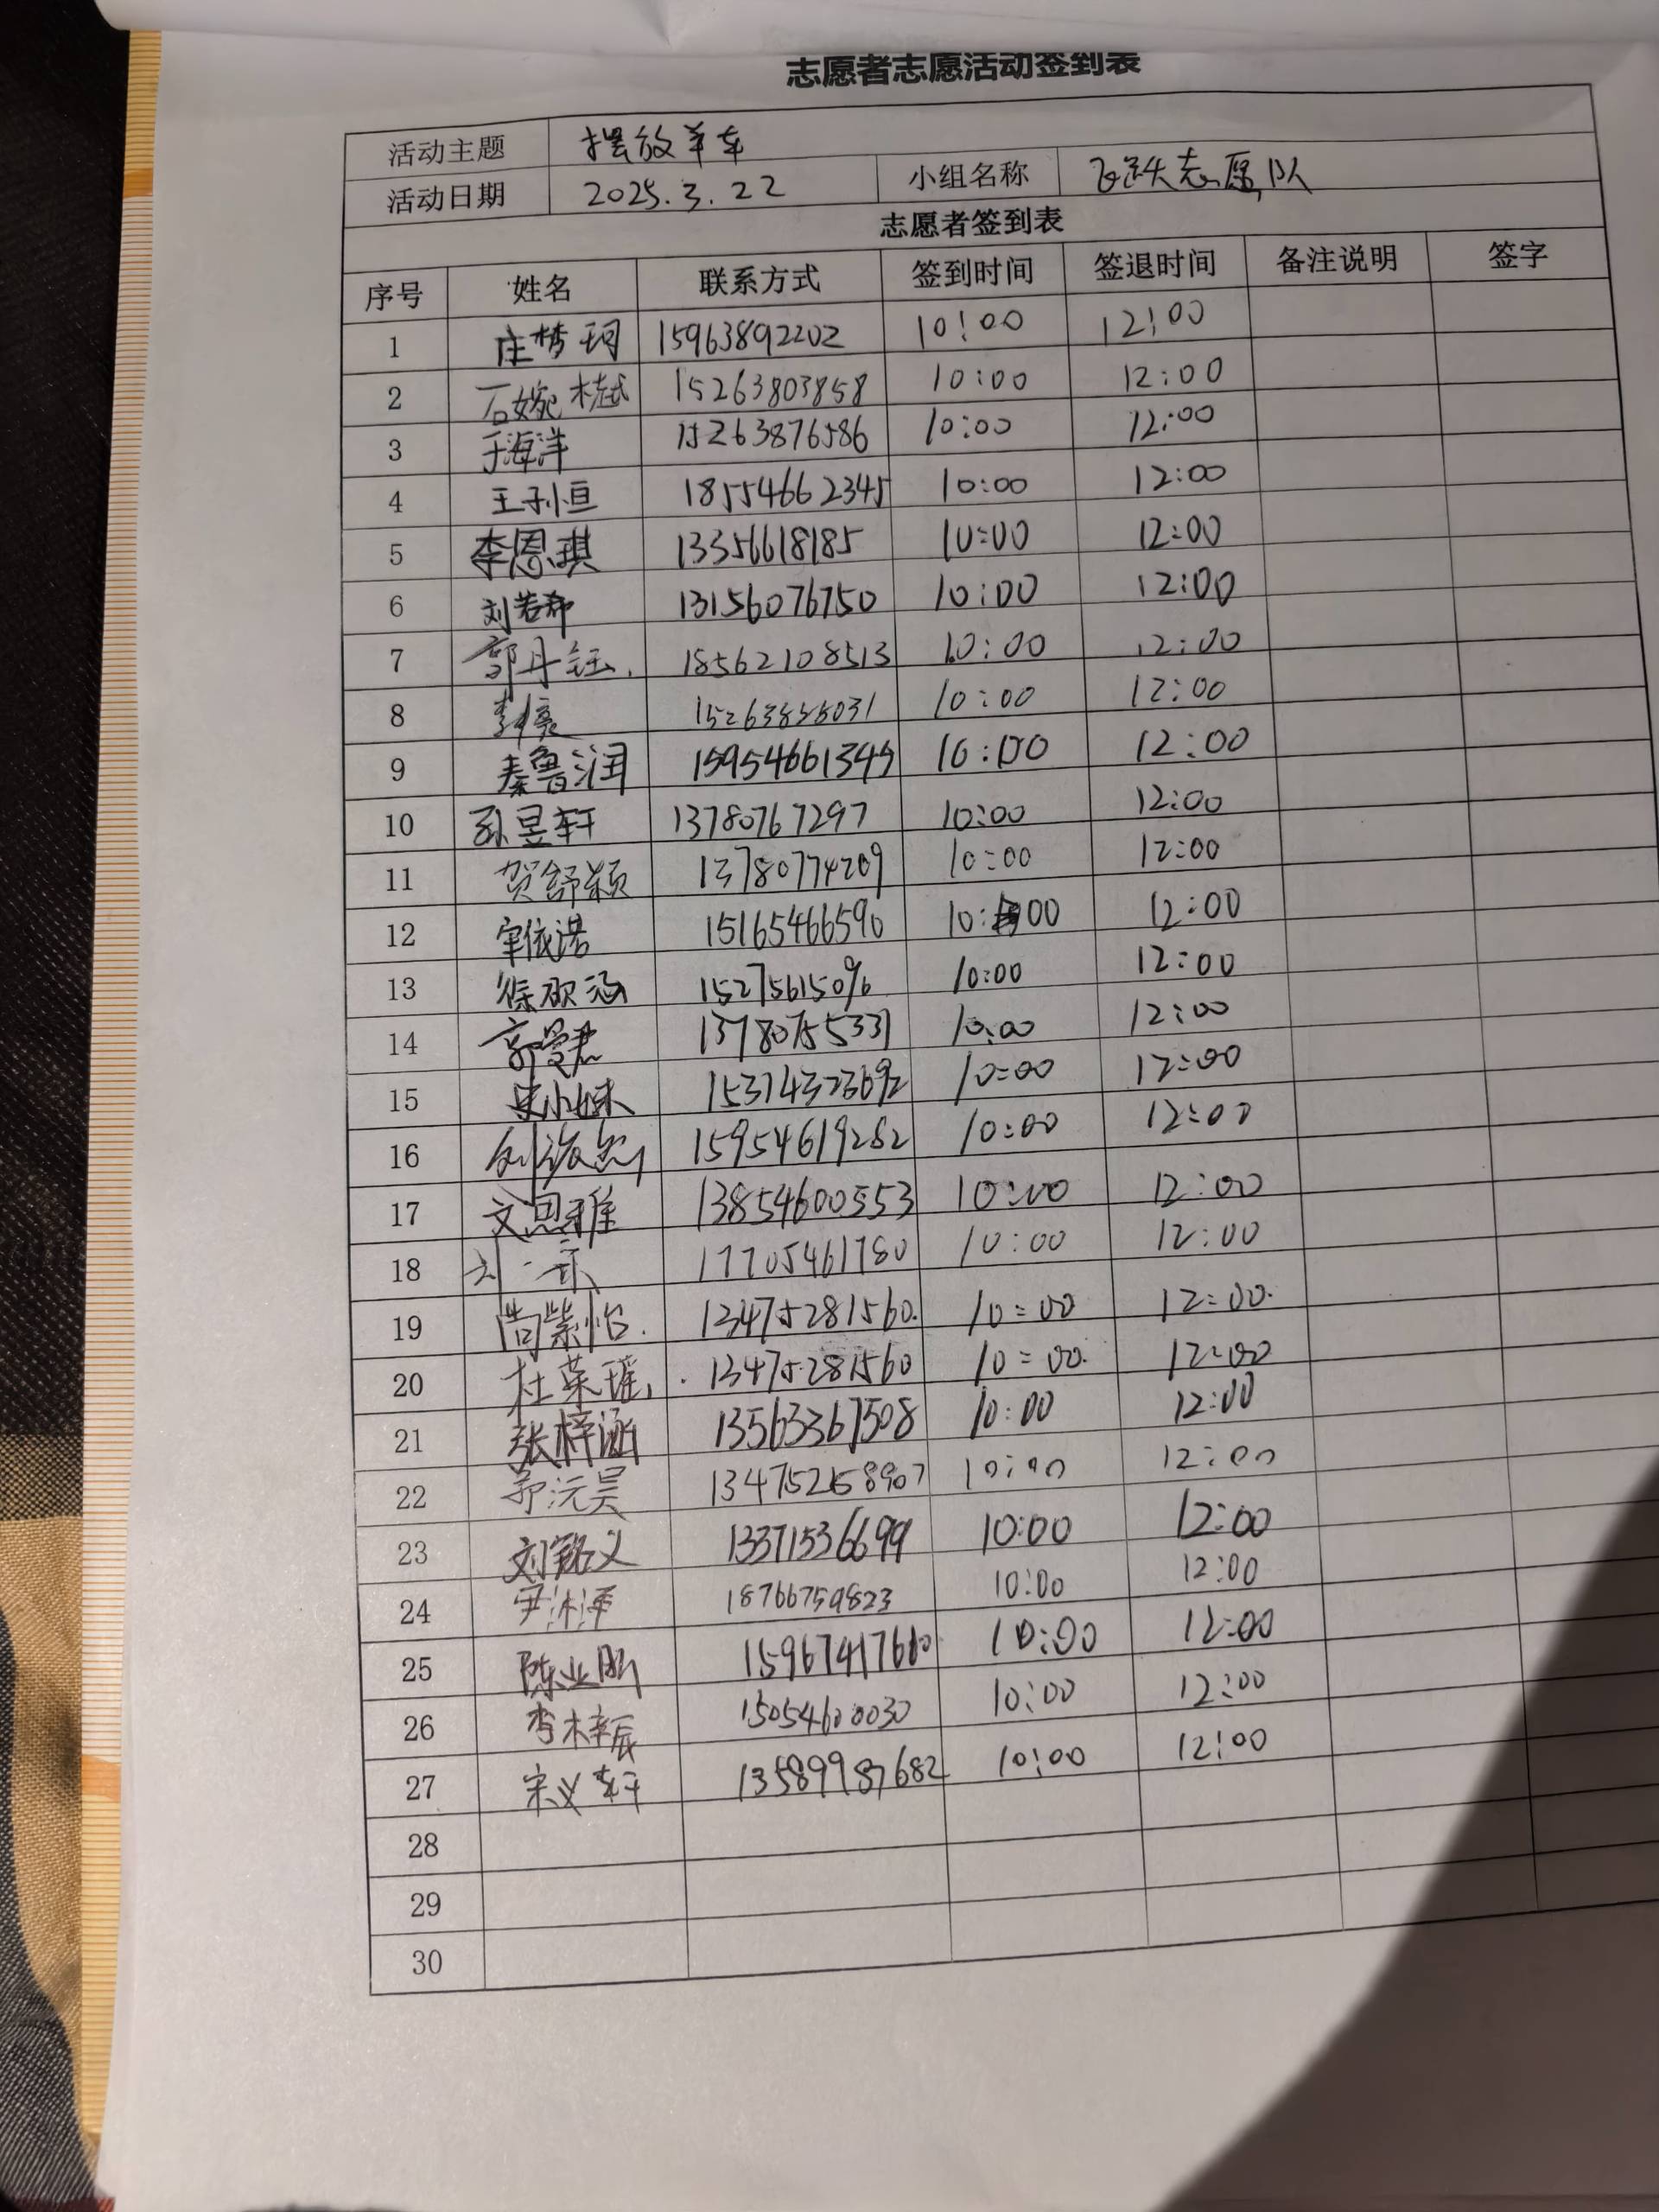 志愿者志愿活动签到表
活动主题 摆放单车
活动日期 2025.3.22 小组名称 飞跃志愿队
志愿者签到表
序号 姓名 联系方式 签到时间 签退时间 备注说明 签字
1 庄梦珂 15963892202 10:00 12:00
2 石婉栻 15263803858 10:00 12:00
3 于海洋 15263876586 10:00 12:00
4 王子恒 18554662345 10:00 12:00
5 李恩琪 13356618185 10:00 12:00
6 刘若希 13156076750 10:00 12:00
7 郭丹钰 18562108513 10:00 12:00
8 10:00 12:00
9 秦鲁润 15954661345 10:00 12:00
10 孙昱轩 13780767297 10:00 12:00
11 贺舒颖 13780774209 10:00 12:00
12 依诺 15165466590 10:00 12:00
13 徐砚涵 15275615096 10:00 12:00
14 郭曼君 13780755331 10:00 12:00
15 史小妹 15314323692 10:00 12:00
16 15954619282 10:00 12:00
17 文思雅 13854600553 10:00 12:00
18 刘一 17705461780 10:00 12:00
19 尚紫怡. 13475281560. 10=00 12=00.
20 杜荣瑶 13475281560 10=00. 12=00
21 张梓涵 13563367508 10:00 12:00
22 郭沅昊 10:00 12:00
23 刘铭义 13371536699 10:00 12:00
24 尹沐泽 18766759823 10:00 12:00
25 陈业鹏 15967417660 10:00 12:00
26 李梓辰 15054600030 10:00 12:00
27 宋义轩 13589987682 10:00 12:00
28
29
30